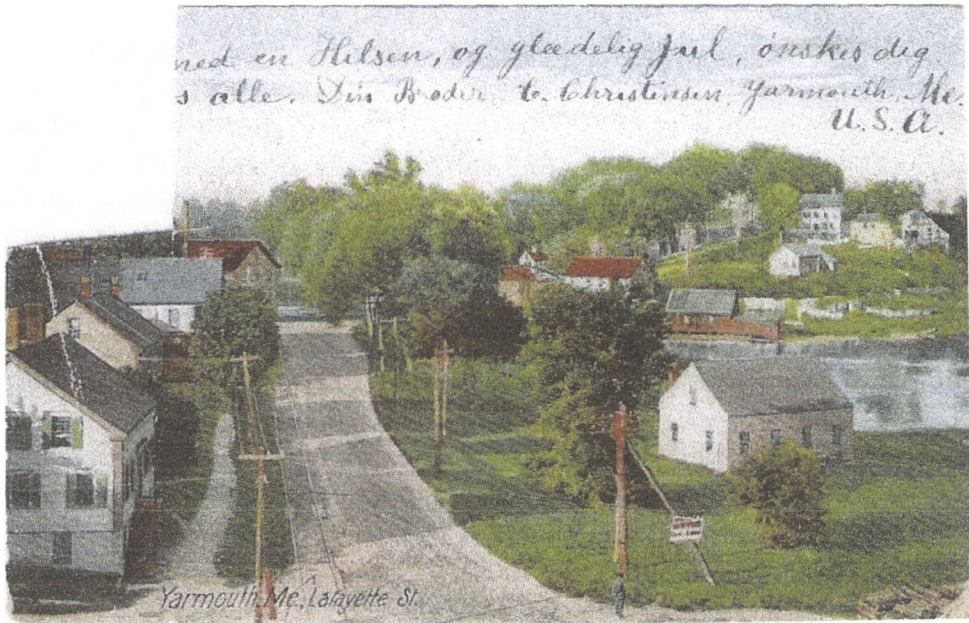 med en Hilsen, og glædelig Jul, ønskes dig
s alle. Din Broder C. Christensen, Yarmouth, Me.
U.S.A.
Yarmouth, Me., Lafayette St.